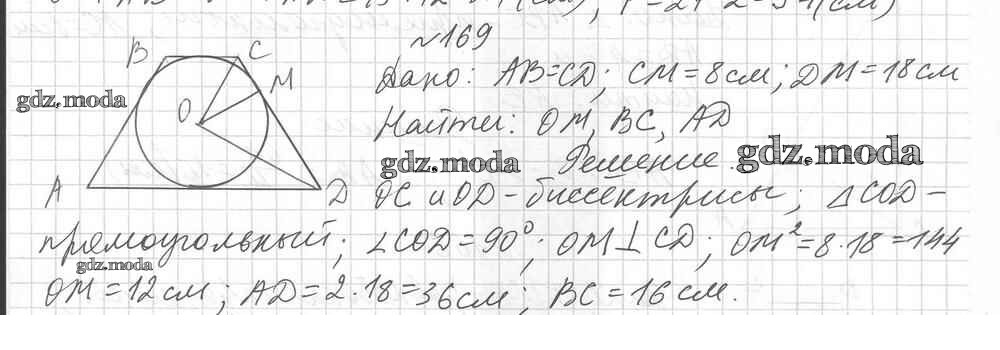 №169
B C
M
O
A D
Дано: AB=CD; CM=8см; DM=18см
Найти: OM, BC, AD
Решение.
OC и OD - биссектрисы; △COD -
прямоугольный; ∠COD=90°; OM⊥CD; OM²=8·18=144
OM=12см; AD=2·18=36см; BC=16см.
gdz.moda
gdz.moda
gdz.moda
gdz.moda